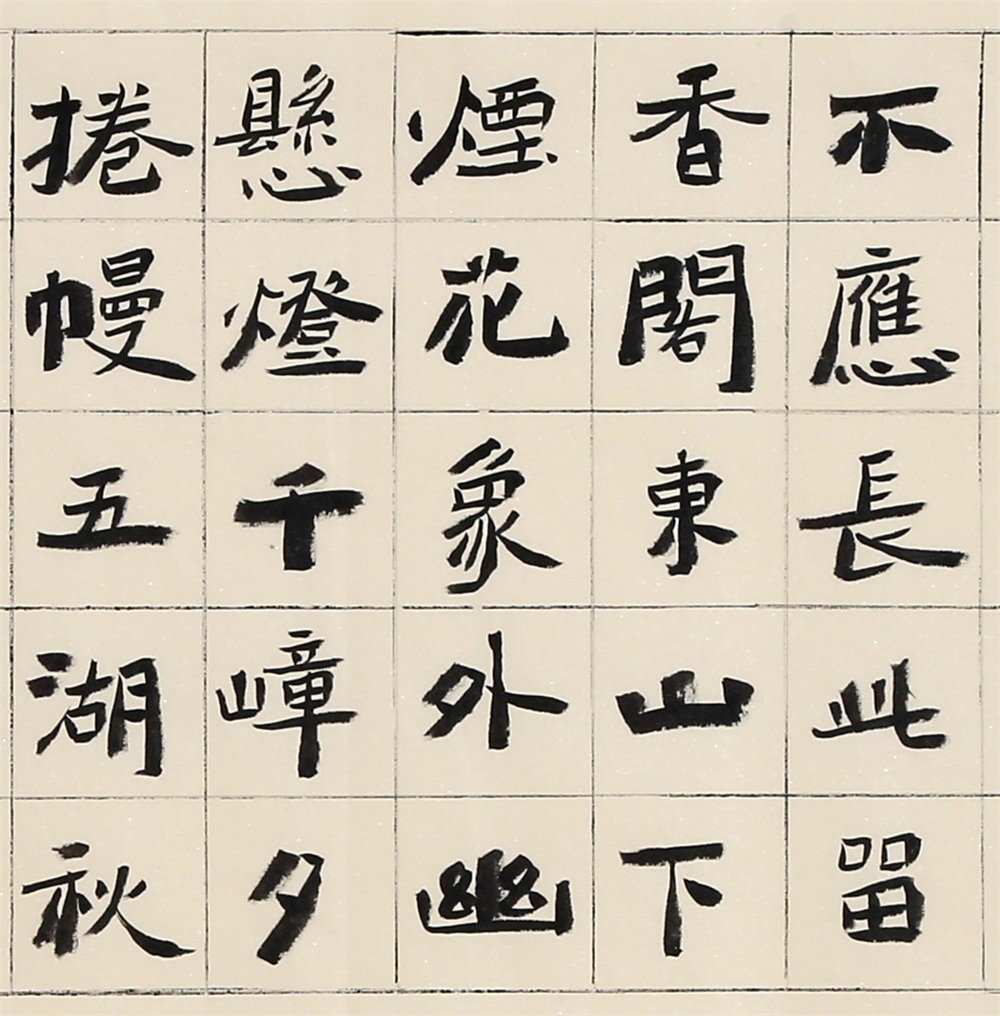 不應長此留
香閣東山下
煙花象外幽
懸燈千嶂夕
捲幔五湖秋